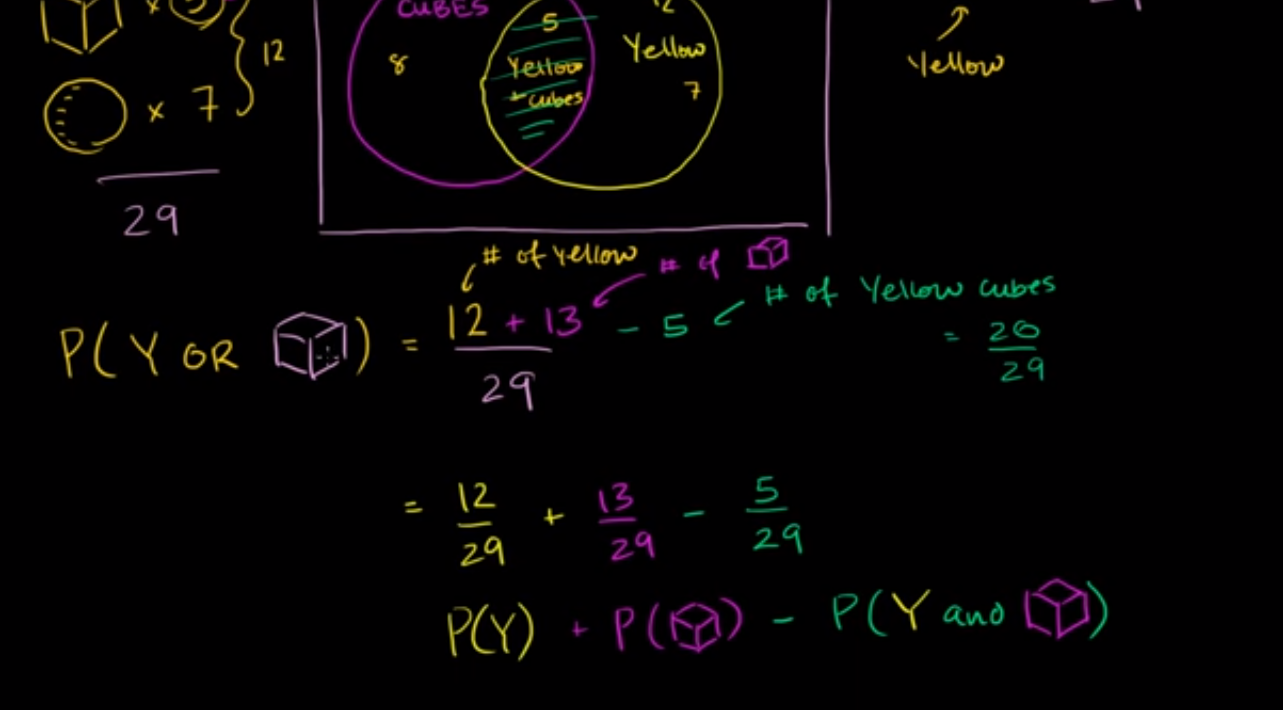 CUBES
× 5
5
12
12
8
Yellow
Yellow
cubes
7
Yellow
× 7
29
# of Yellow
# of
# of Yellow cubes
P(Y OR ) = 12 + 13 - 5 = 20
29 29
= 12 + 13 - 5
29 29 29
P(Y) + P( ) - P(Y and )